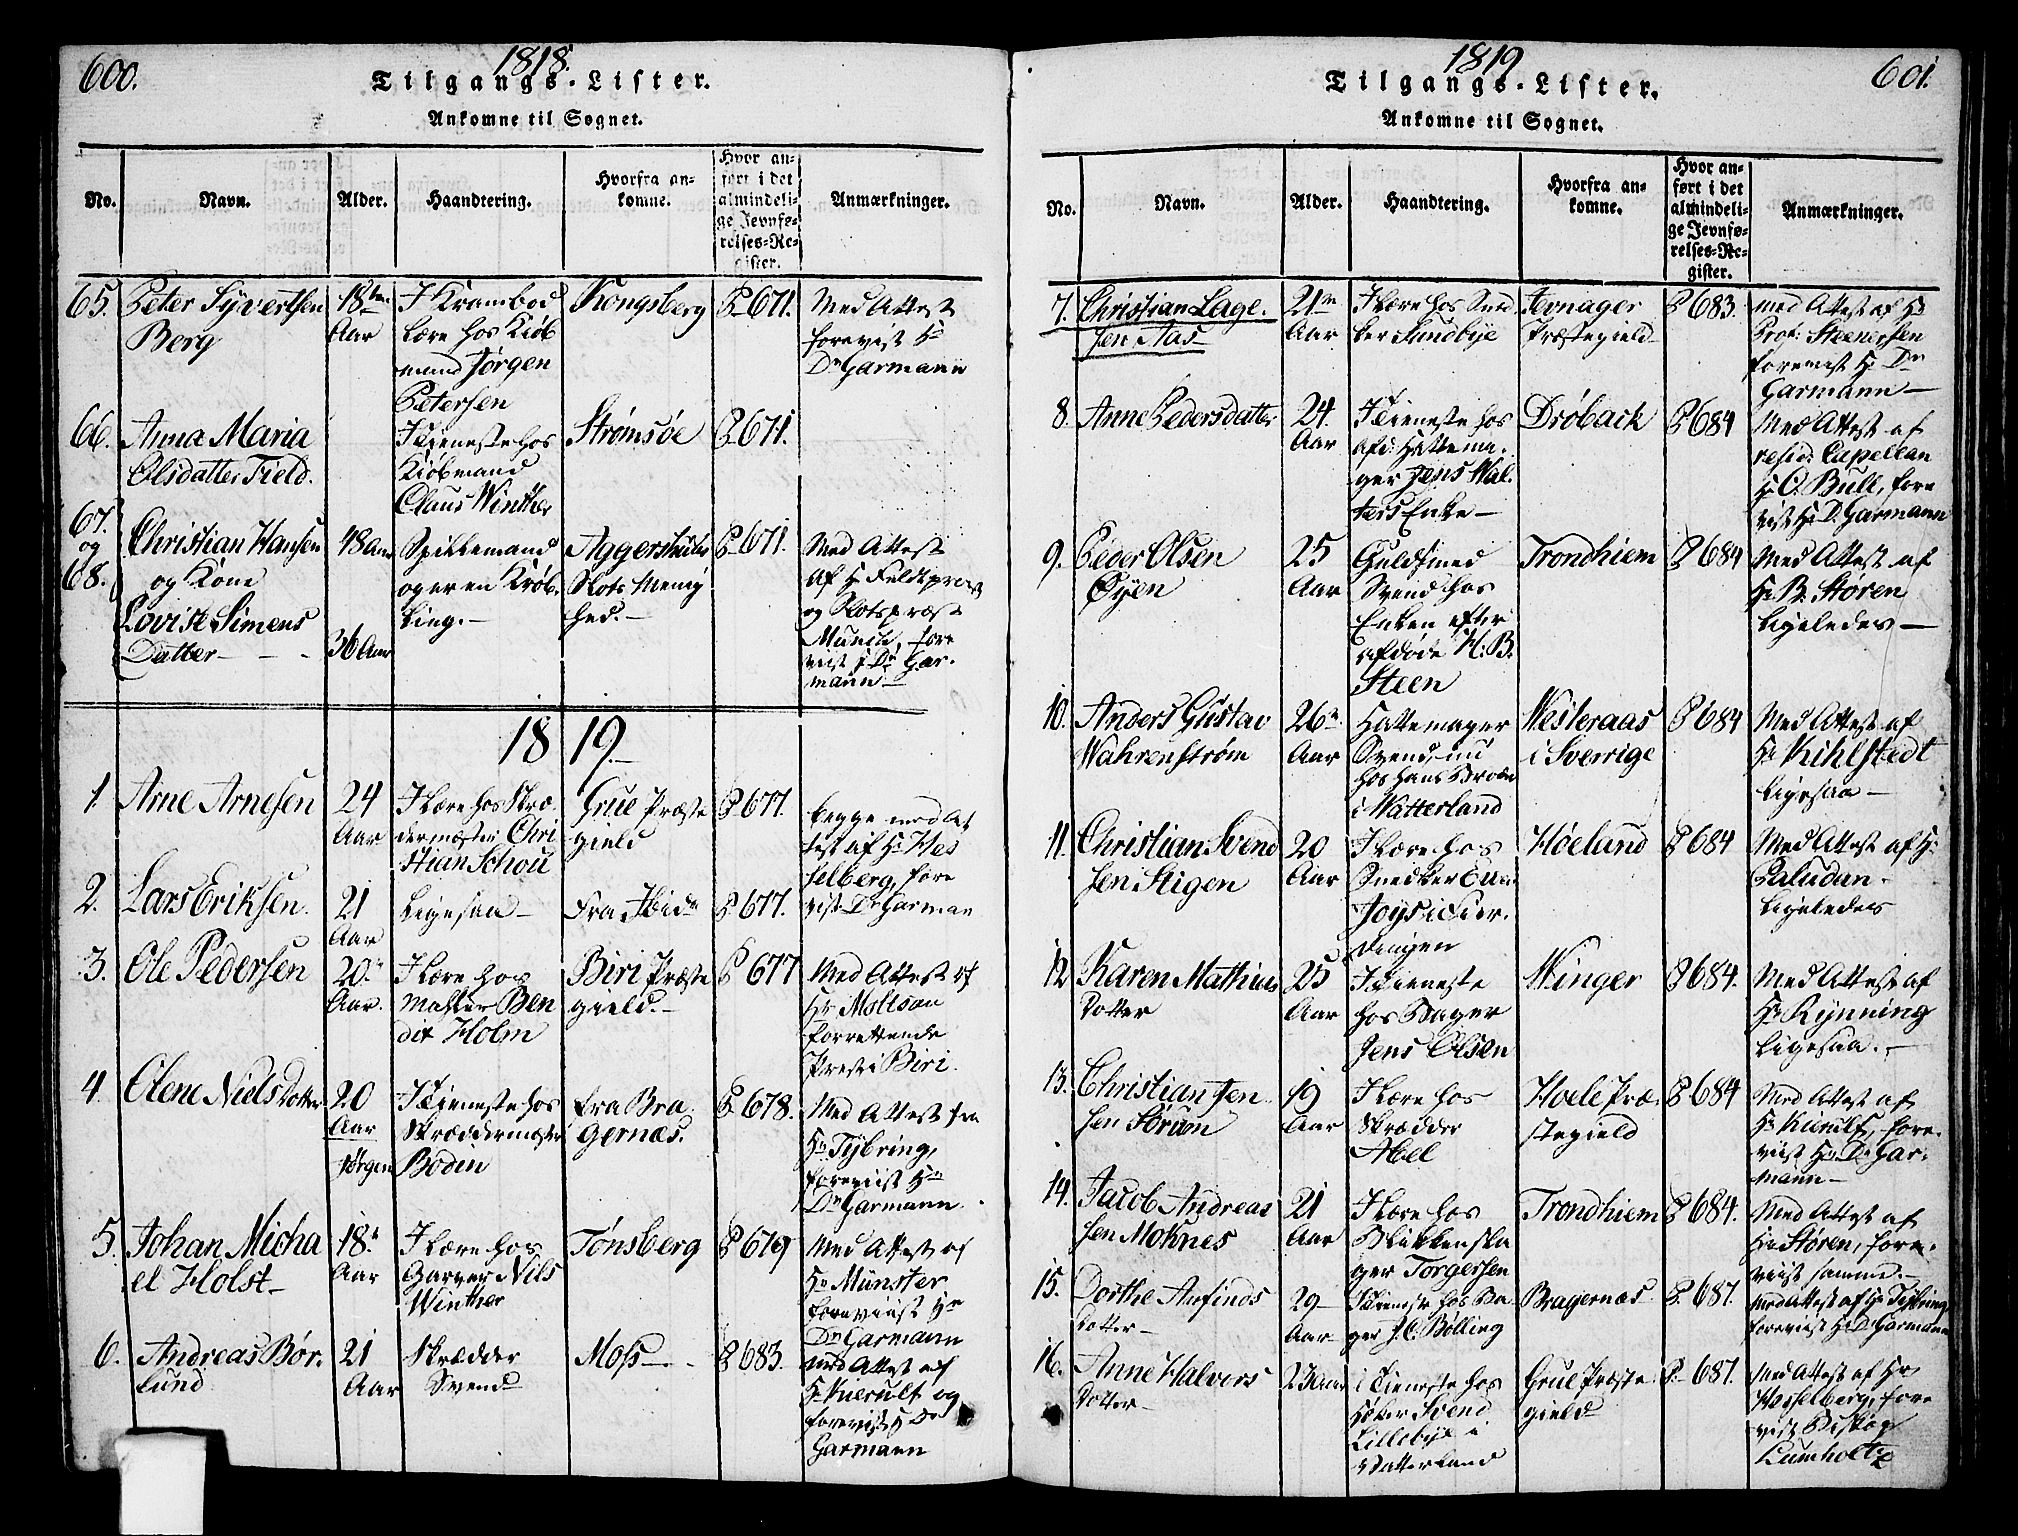 600.
1818.
Tilgangs-Lister.
Ankomne til Sognet.
No.
Navn.
Alder.
Haandtering.
Hvorfra an-
komne.
Hvor an-
ført i det
almindeli-
ge Jevnfø-
relses-Re-
gister.
Anmærkninger.
65.
Peter Syvertsen
Berg
18
Aar
I Krambod
Lære hos Kiøb
mand Jørgen
Petersen
Kongsberg
P. 671.
Med Attest
forevist Hr
Dr Garmann
66.
Anna Maria
Olsdatter Field.
I Tieneste hos
Kiøbmand
Claus Winther
Strømsöe
P. 671.
67.
og
68.
Christian Hansen
og Kone
Lovise Simens
Datter
48 Aar
36 Aar
Spillemand
og er en Krøb-
ling.
Aggershuus
Slots Menig
hed.
P. 671.
Med Attest
af Hr Feldtpræst
og Slotspræst
Munch, fore
viist Hr Dr Gar-
mann
1819.
1.
Arne Arnesen
24
Aar
I Lære hos Skræ-
dermester Chri
stian Schou
Grue Præste
gield
P. 677.
begge med At
test af Hr Hes
selberg, fore
vist Dr Garman
2.
Lars Eriksen.
21
Aar
Ligesaa
Fra Ibid
P. 677.
3.
Ole Pedersen
20
Aar.
I Lære hos
Mahler Ben
dit Holm
Biri Præste
gield.
P. 677
Med Attest af
Hr Moltsau
forrettende
Prest i Biri.
4.
Olene Niels Dotter
20
Aar
I Tieneste hos
Skræddermester
Jørgen Boden
fra Bra
gernæs.
P. 678.
Med Attest fra
Hr Tybring,
foreviist Hr
Dr Garmann.
5.
Johan Micha
el Holst
18
Aar
I Lære hos
Garver Nils
Winther
Tønsberg
P. 679
Med Attest af
Hr Münster
foreviist Hr
Dr Garmann
6.
Andreas Bør-
lund
21
Aar
Skrædder
Svend
Moss
P. 683.
Med Attest af
Hr Kierulf og
forevist Hr Dr
Garmann
1819
601.
Tilgangs-Lister.
Ankomne til Sognet.
No.
Navn.
Alder.
Haandtering.
Hvorfra an-
komne.
Hvor an-
ført i det
almindeli-
ge Jevnfø-
relses-Re-
gister.
Anmærkninger.
7.
Christian Lage-
sen Aas
21
Aar
I Lære hos Sned
ker Sundbye
Jevnager
Præstegield
P. 683.
med Attest af Hr
Prof. Steenersen
forevist Hr Dr
Garmann
8.
Anne Pedersdatter
24.
Aar
I Tieneste hos
afd: Hattema-
ger Jens Wal-
ters Enke
Drøback
P. 684
Med Attest af
resid: Capellan
Hr O. Bull, fore
vist Hr Dr Garmann
9.
Peder Olsen
Øyen
25
Aar
Guldsmed
Svend hos
Enken efter
afdøde H: B:
Steen
Trondhiem
P. 684
Med Attest af
Hr B: Støren
Ligeledes
10.
Anders Gustav
Wahrenstrøm
26
Aar
Hattemager
Svend, nu
hos Hans Brode
i Watterland
Westeraas
i Sverrige
P. 684
Med Attest af
Hr Kihlstedt
Ligesaa
11.
Christian Svend
sen Stigen
20
Aar
I Lære hos
Snedker Even
Joys i Fier-
dingen
Høeland
P. 684
Med Attest af Hr
Paludan
Ligeledes
12
Karen Mathias
Dotter
25
Aar
I Tieneste
hos Bager
Jens Olsen
Winger
P. 684.
Med Attest af
Hr Rynning
Ligesaa.
13.
Christian Jen
sen Störon
19
Aar
I Lære hos
Skrædder
Abel
Hoele Præ-
stegield
P. 684
Med Attest af
Hr Kierulf, fore-
viist Hr Dr Gar-
mann
14.
Jacob Andreas
sen Moknes
21
Aar
I Lære hos
Blikkensla
ger Torgersen
Trondhiem
P. 684.
Med Attest af
Hr Støren, fore-
viist samme.
15.
Dorthe Arfinds
Dotter
29
Aar
I Tieneste hos Ba
ger J. C. Bölling
Bragernæs
P. 687.
Med Attest af Hr Tybring
foreviist Hr Dr Garmann
16.
Anne Halvors
Dotter
23 Aar
i Tieneste hos
Høker Svend
Lillebye i
Vatterland
Grue Præste
gield
P. 687.
Med Attest af Hr
Hesselberg, fore
viist Biskop
Lumholtz